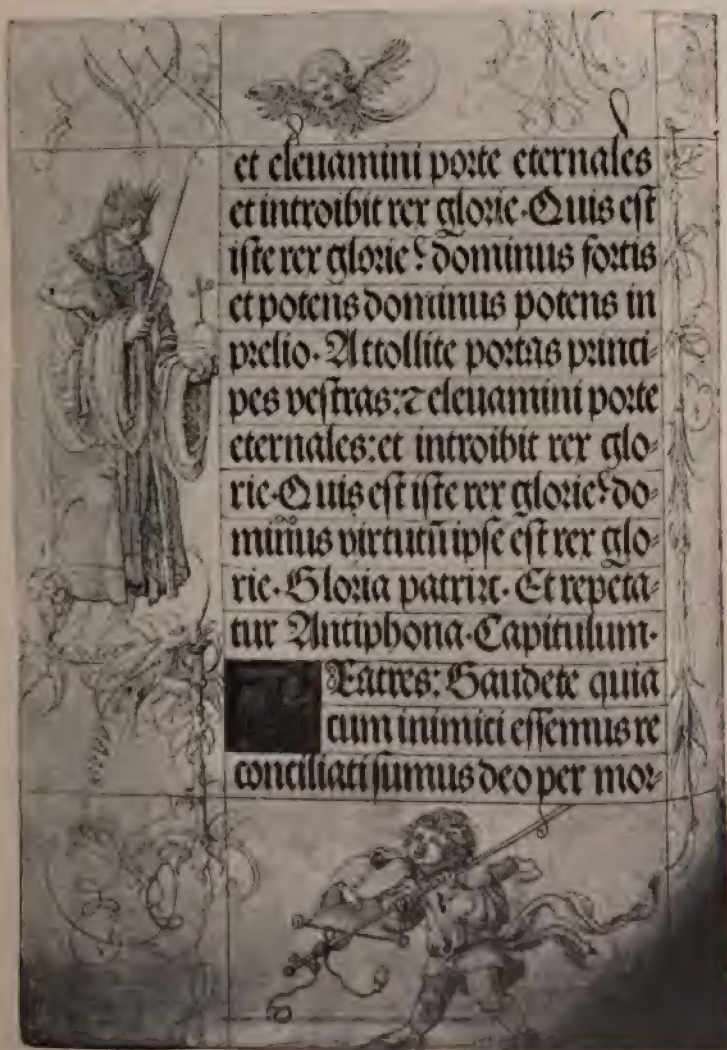 et eleuamini porte eternales
et introibit rex glorie. Quis est
iste rex glorie? dominus fortis
et potens dominus potens in
prelio. Attollite portas princi-
pes vestras: ⁊ eleuamini porte
eternales: et introibit rex glo-
rie. Quis est iste rex glorie? do-
minus virtutū ipse est rex glo-
rie. Gloria patri ⁊c. Et repeta-
tur Antiphona. Capitulum.
Fratres: Gaudete quia
cum inimici essemus re
conciliati sumus deo per mor-